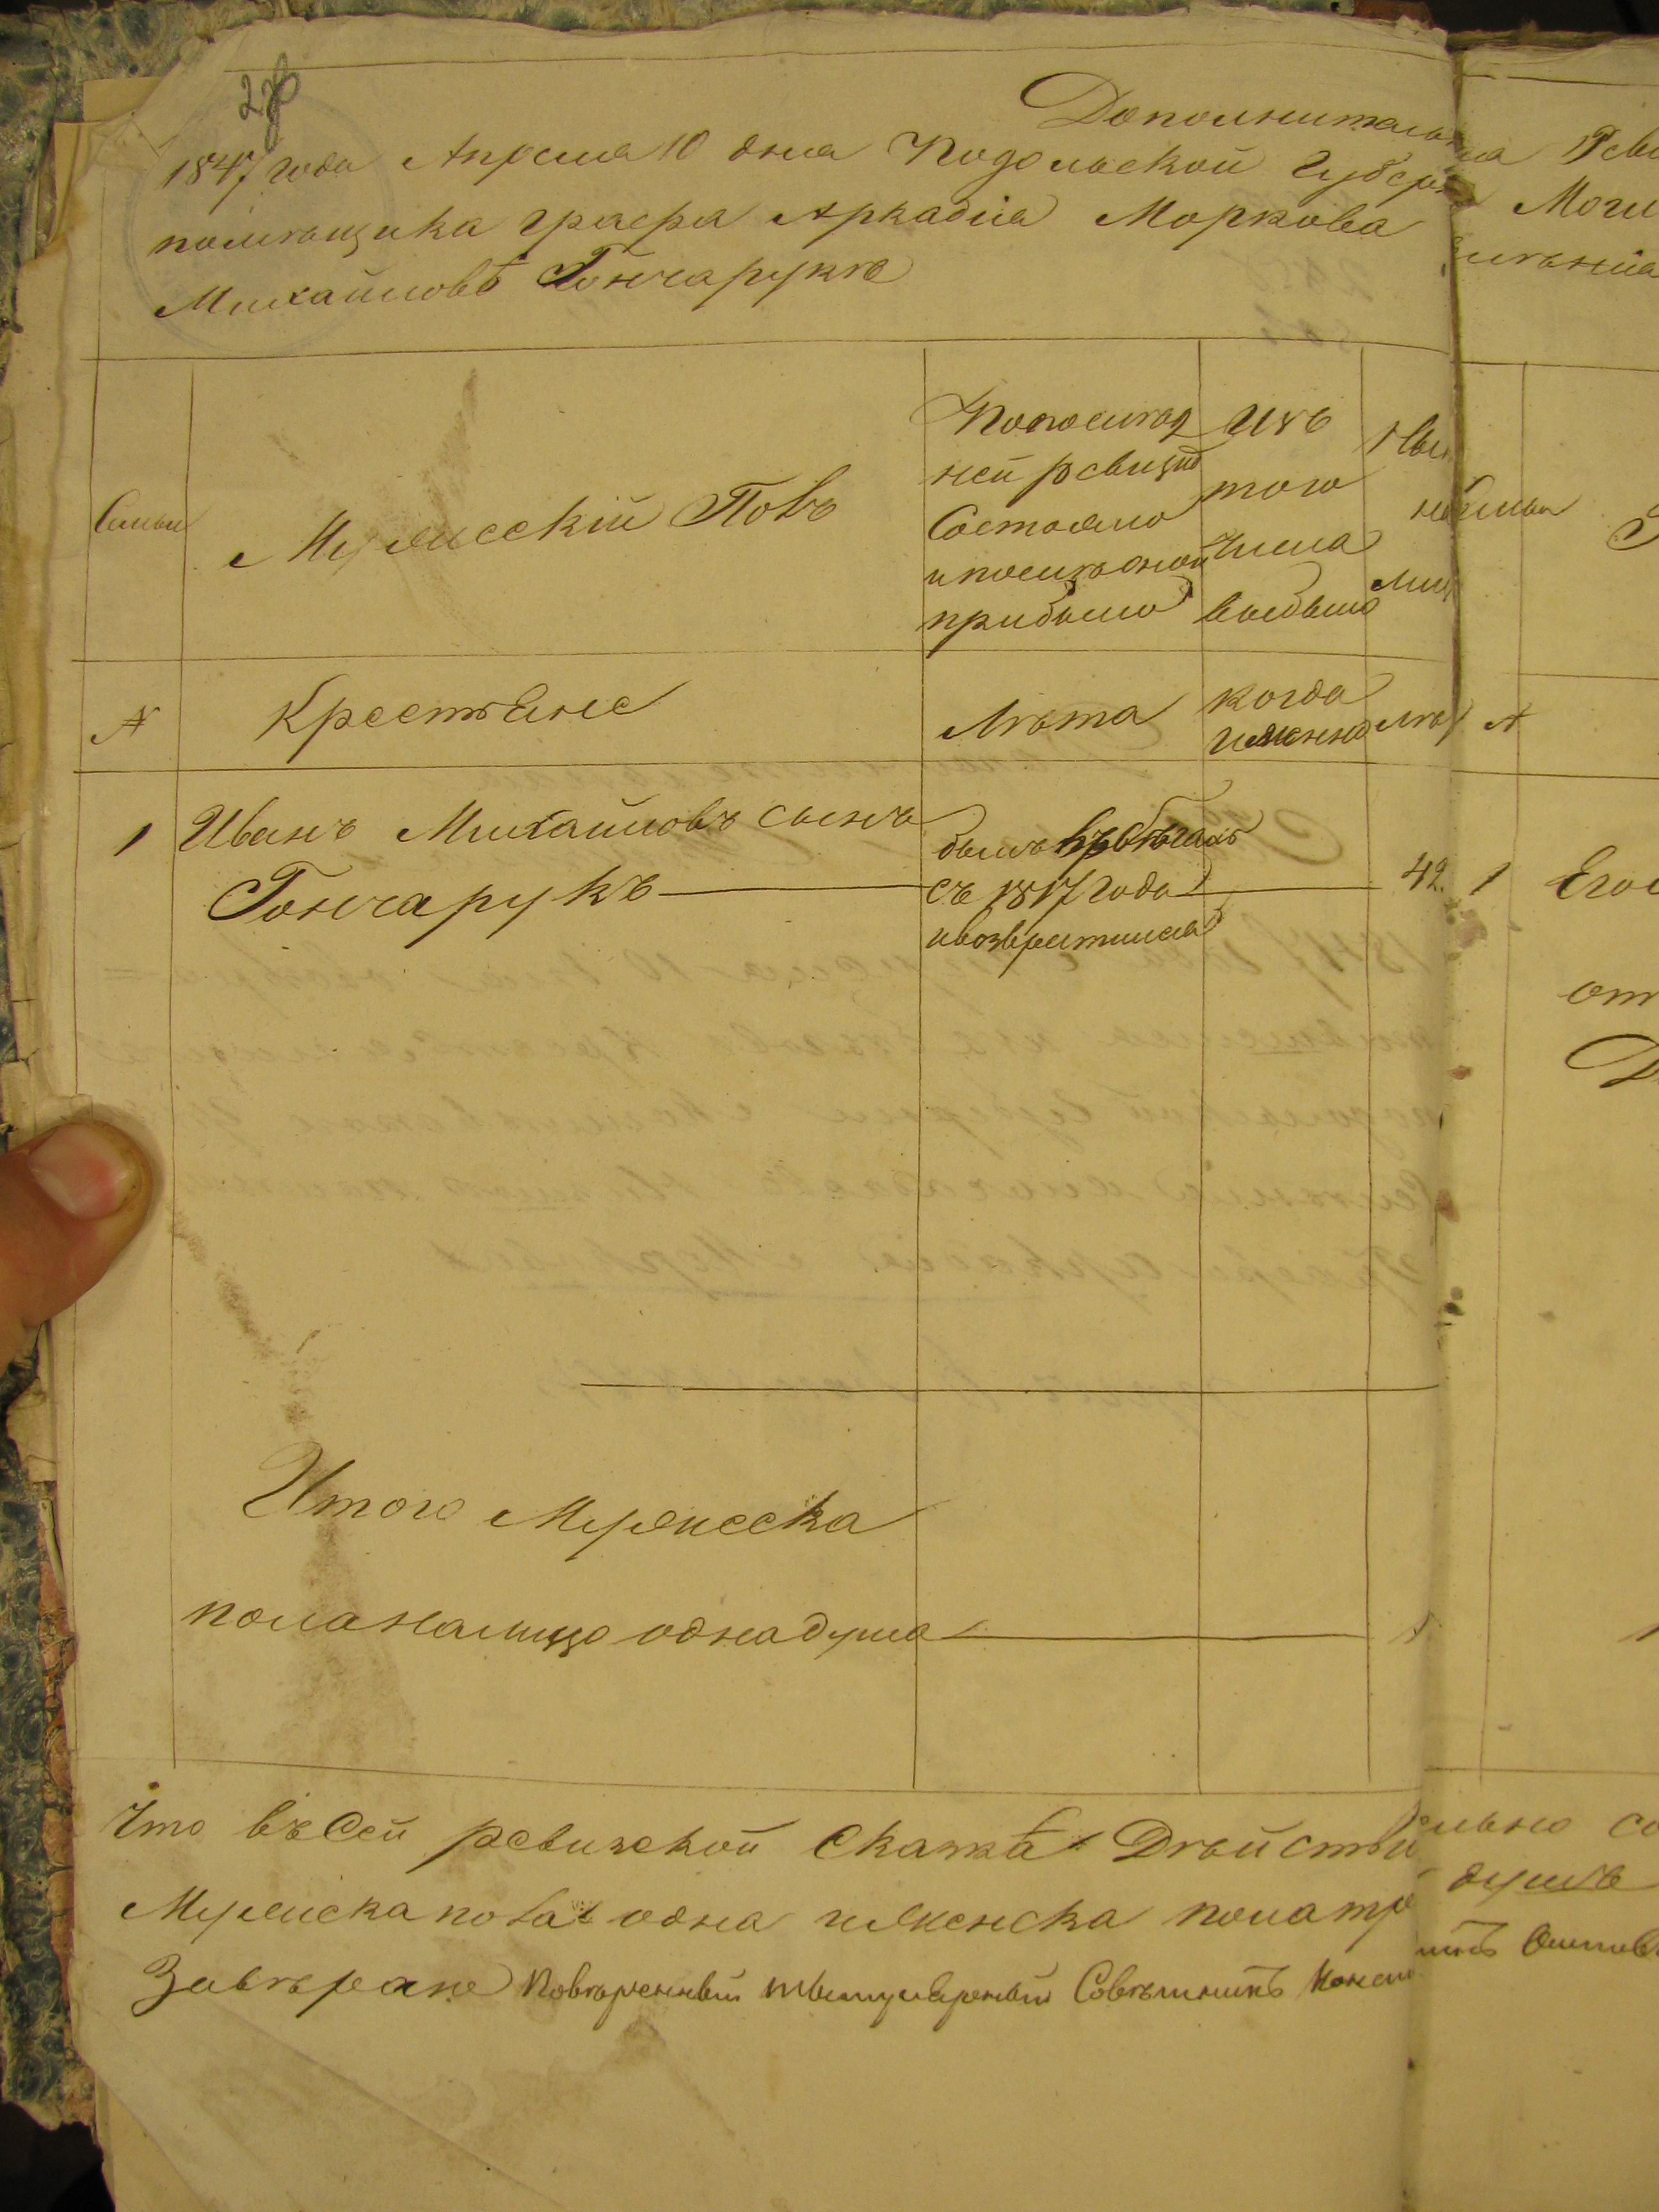 Дополнительная Реви
1847 года Апреля 10 дня Подольской Губерн Моги
помѣщика графа Аркадіа Моркова
Михайловѣ Гончарукѣ
Семьи
Мужесскій Полъ
По послѣд
ней ревизіи
Состояло
и послѣ оной
прибыло
Изъ
того
числа
выбыло
Нын
нѣ
Лиц
Семьи
№
Крестьяне
Лѣта
когда
именно
Лѣт
№
1 Иванъ Михайловъ сынъ
Гончарукъ
былъ въ бѣгахъ
съ 1817 года
и возвратился
42.
1 Его
от
Итого Мужесска
пола налицо одна душа 1
Что въ Сей ревизской Сказкѣ Дѣйствительно со
Мужеска пола одна и женска пола тре душъ
Завѣряне Повѣренный титулярный Совѣтникъ